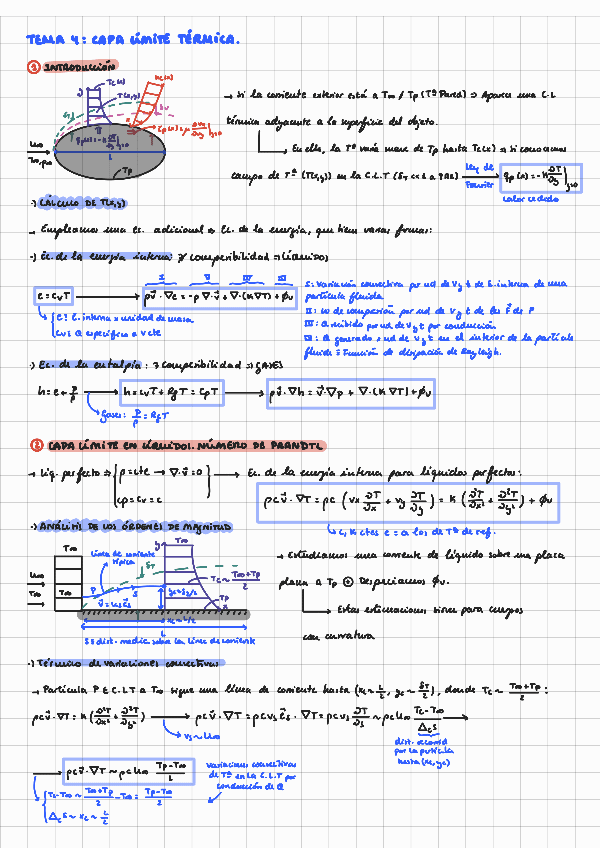 TEMA 4: CAPA LÍMITE TÉRMICA.
① INTRODUCCIÓN
→ Si la corriente exterior está a T∞ / Tp (Tª Pared) ⇒ Aparece una C.L
térmica adyacente a la superficie del objeto.
En ella, la Tª varía mucho de Tp hasta Te(x) ⇒ Si conocemos
campo de Tª (T(x,y)) en la C.L.T
Ley de Fourier
qp(x) = -k ∂T/∂y |y=0
calor cedido
Te(x)
T(x,y)
ue(x)
U∞
T∞, p∞
L
Tp
·) CÁLCULO DE T(x,y)
→ Empleamos una ec. adicional ⇒ Ec. de la energía, que tiene varias formas:
·) Ec. de la energía interna: ∄ compresibilidad ⇒ LÍQUIDOS
e = cvT
ρv̄·∇e = -p∇·v̄ + ∇·(k∇T) + ϕv
I II III IV
e: E. interna x unidad de masa
cv: Q específico a V cte
I: Variación convectiva por ud de V y t de E. interna de una
partícula fluida
II: W de compresión por ud. V y t de las F̄ de P
III: Q recibido por ud. de V y t por conducción
IV: Q generado x ud de V y t en el interior de la partícula
fluida = Función de disipación de Rayleigh.
·) Ec. de la entalpía: ∃ compresibilidad ⇒ GASES
h = e + p/ρ
h = cvT + RgT = cpT
ρv̄·∇h = v̄·∇p + ∇·(k∇T) + ϕv
Gases: p/ρ = RgT
② CAPA LÍMITE EN LÍQUIDOS. NÚMERO DE PRANDTL
→ Líq. perfecto ⇒ { ρ = cte → ∇·v̄ = 0
cp = cv = c
Ec. de la energía interna para líquidos perfectos:
ρcv̄·∇T = ρc (vx ∂T/∂x + vy ∂T/∂y) = k (∂²T/∂x² + ∂²T/∂y²) + ϕv
c, k ctes e = a los de Tª de ref.
·) ANÁLISIS DE LOS ÓRDENES DE MAGNITUD
T∞
Línea de corriente típica
δT
T∞
U∞
T∞
T∞
P
v̄ = vs ēs
yc ~ δT/2
Tc ~ (T∞+Tp)/2
Tp
xc ~ L/2
L
s ≡ dist. medida sobre la línea de corriente
→ Estudiamos una corriente de líquido sobre una placa
plana a Tp ⊕ Despreciamos ϕv.
Estas estimaciones sirven para cuerpos
con curvatura
·) Término de variaciones convectivas
→ Partícula P ∈ C.L.T a T∞ sigue una línea de corriente hasta (xc ~ L/2, yc ~ δT/2), donde Tc ~ (T∞+Tp)/2 :
ρcv̄·∇T = k(∂²T/∂x² + ∂²T/∂y²) → ρcv̄·∇T = ρcvs ēs·∇T = ρcvs ∂T/∂s ~ ρcU∞ (Tc-T∞)/Δcs
vs ~ U∞
dist. recorrida
por la partícula
hasta (xc, yc)
ρcv̄·∇T ~ ρcU∞ (Tp-T∞)/L
variaciones convectivas
de Tª en la C.L.T por
conducción de Q
Tc-T∞ ~ (T∞+Tp)/2 - T∞ = (Tp-T∞)/2
Δcs ~ xc ~ L/2